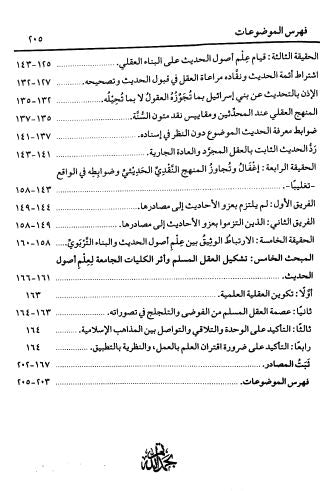 فهرس الموضوعات
٢٠٥
الحقيقة الثالثة: قيام علم أصول الحديث على البناء العقلي. ١٢٥-١٤٣
اشتراط أئمة الحديث ونقَّاده مراعاة العقل في قبول الحديث وتصحيحه. ١٢٧-١٣٢
الإذن بالتحديث عن بني إسرائيل بما تُجَوِّزُهُ العقولُ لا بما تُحِيْلُه. ١٣٢-١٣٥
المنهج العقلي عند المحدِّثين ومقاييس نقد متون السُّنَّة. ١٣٥-١٣٧
ضوابط معرفة الحديث الموضوع دون النظر في إسناده. ١٣٧-١٤١
رَدُّ الحديث الثابت بالعقل المجرَّد والعادة الجارية. ١٤١-١٤٣
الحقيقة الرابعة: إغْفَالُ وتُجاوزُ المنهج النَّقْدِيِّ الحَدِيْثِيِّ وضوابِطِه في الواقع
-تغليبًا-. ١٤٣-١٥٨
الفريق الأول: لم يلتزم بعزو الأحاديث إلى مصادرها. ١٤٤-١٤٩
الفريق الثاني: الذين التزموا بعزو الأحاديث إلى مصادرها. ١٤٩-١٥٨
الحقيقة الخامسة: الارتباط الوثيق بين علم أصول الحديث والبناء التَّرْبَوِيِّ. ١٥٨-١٦٠
المبحث الخامس: تشكيل العقل المسلم وأثر الكليات الجامعة لِعِلْمِ أصول
الحديث. ١٦١-١٦٦
أوَّلًا: تكوين العقلية العلمية. ١٦٣
ثانيًا: عصمة العقل المسلم من الفوضى والتلجلج في تصوراته. ١٦٣-١٦٤
ثالثًا: التأكيد على الوحدة والتلاقي والتواصل بين المذاهب الإسلامية. ١٦٤
رابعًا: التأكيد على ضرورة اقتران العلم بالعمل، والنظرية بالتطبيق. ١٦٤
ثَبَتُ المصادر. ١٦٧-٢٠٢
فهرس الموضوعات. ٢٠٣-٢٠٥